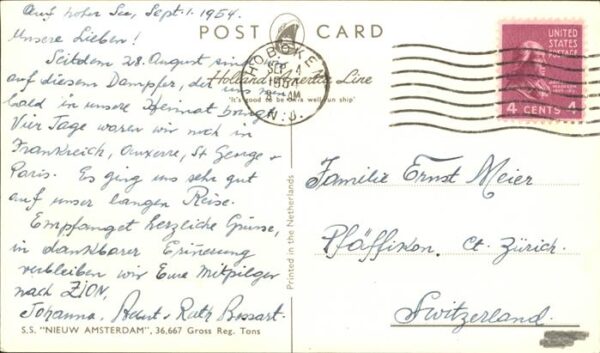 Auf hoher See, Sept. 1. 1954.
Unsere Lieben!
Seitdem 28. August sind
auf diesem Dampfer, der uns
bald in unsere Heimat bringt.
Vier Tage waren wir noch in
Frankreich, Auxerre, St George +
Paris. Es ging uns sehr gut
auf unser langen Reise.
Empfanget herzliche Grüsse,
in dankbarer Erinerung
verbleiben wir Eure Mitpilger
nach ZION,
Johanna, + Ruth Bossart.
S.S. "NIEUW AMSTERDAM", 36,667 Gross Reg. Tons
POST CARD
Holland-America Line
"It's good to be on a well-run ship"
HOBOKEN
SEP 4
1954
AM
N.J.
UNITED
STATES
POSTAGE
4 CENTS 4
Printed in the Netherlands
Familie Ernst Meier
Pfäffikon. Ct. Zürich.
Switzerland.